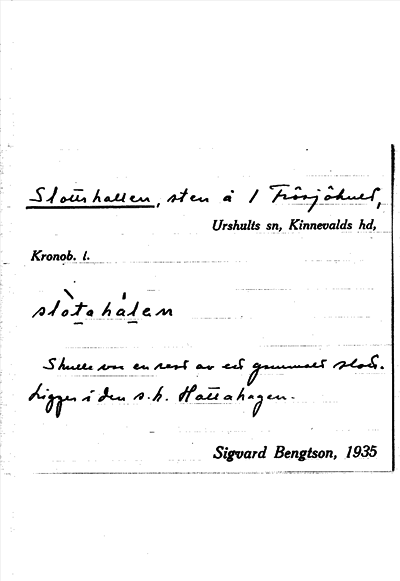 Slottshallen, sten å 1 Frösjöhult,
Urshults sn, Kinnevalds hd,
Kronob. l.
slòtahålen
Skulle vara en rest av ett gammalt slott.
Ligger i den s.k. Hattahagen.
Sigvard Bengtson, 1935